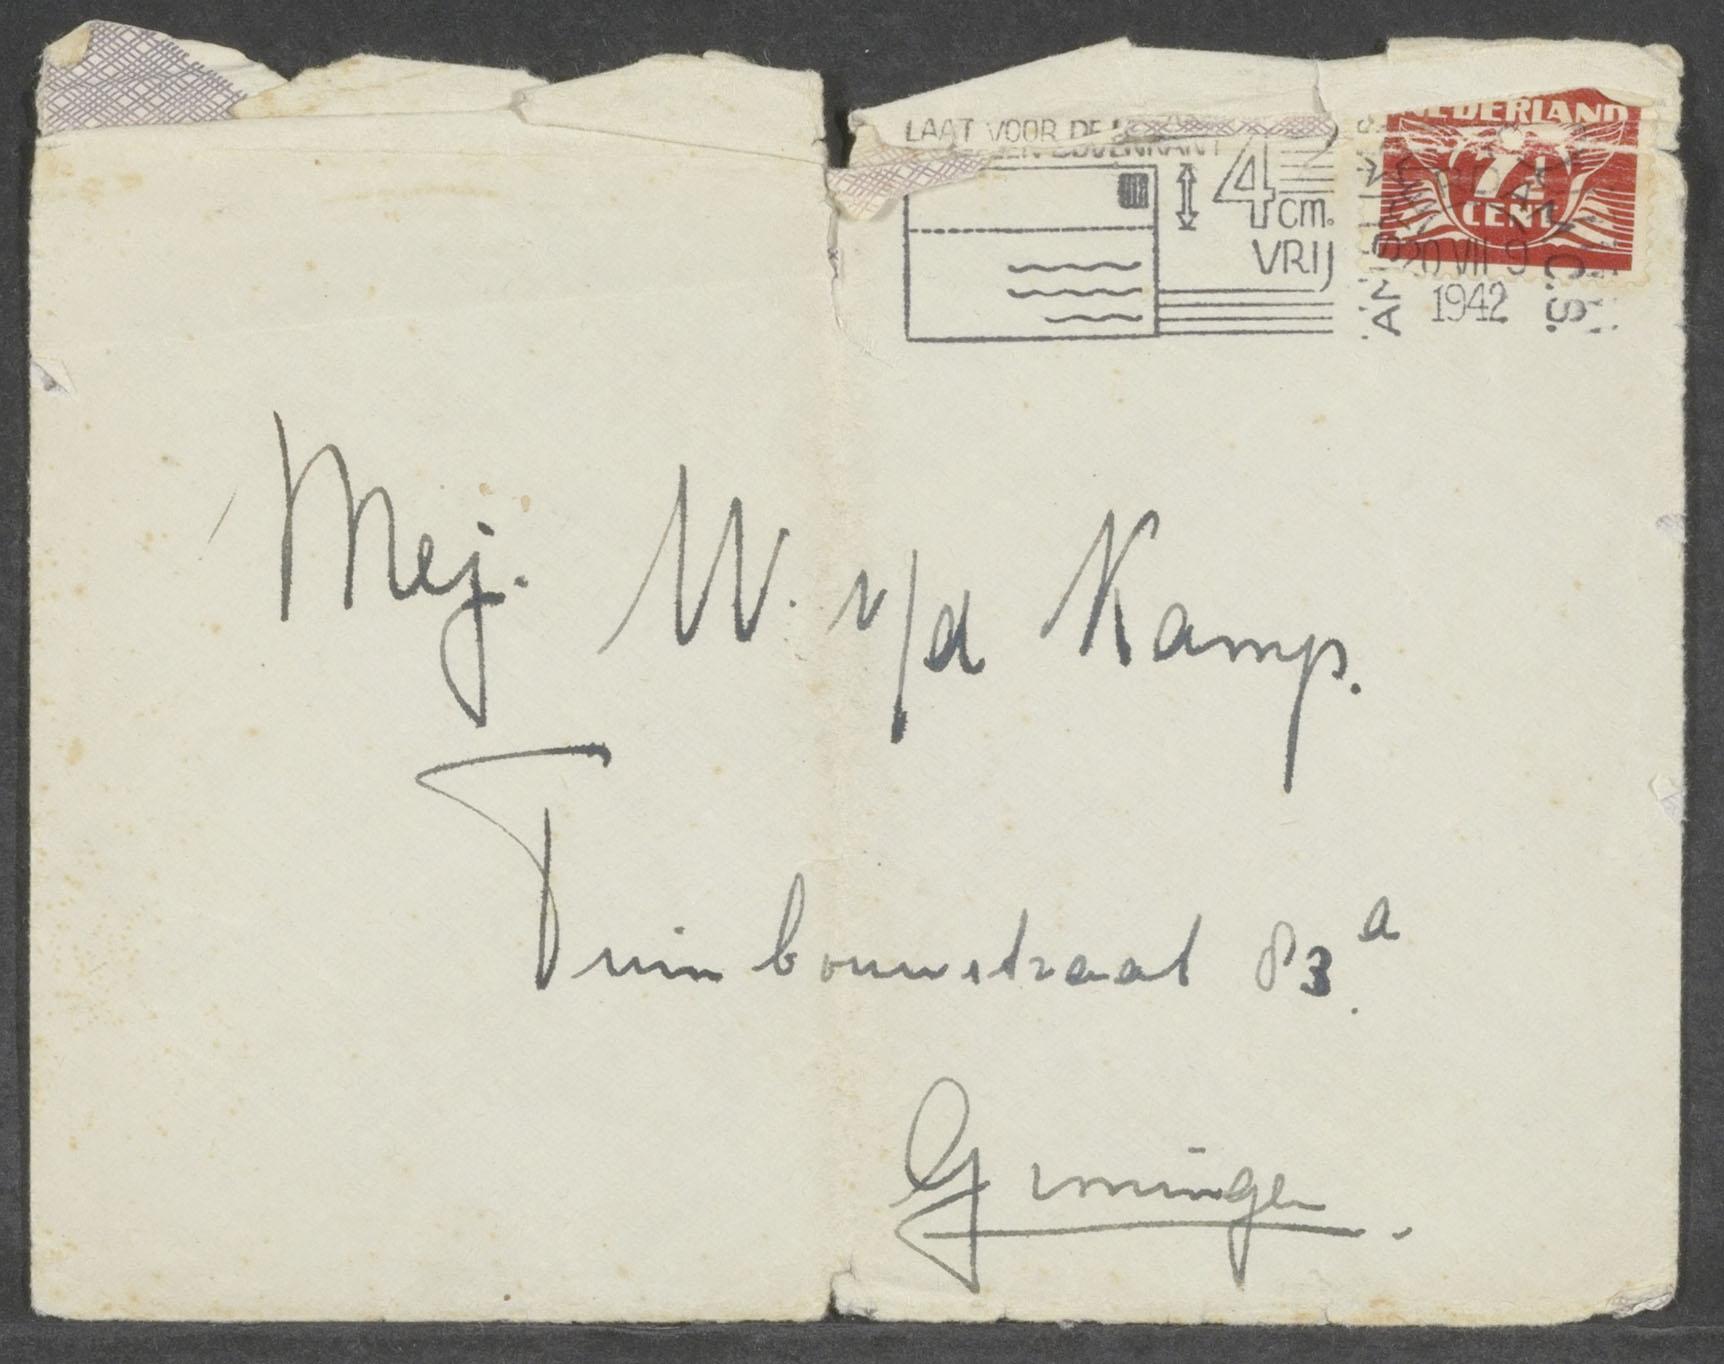 LAAT VOOR DE
BOVENKANT
4 cm.
VRIJ
NEDERLAND
7½
CENT
20 VII 9
1942
Mej. W. v/d Kamp.
Tuinbouwstraat 83a.
Groningen.